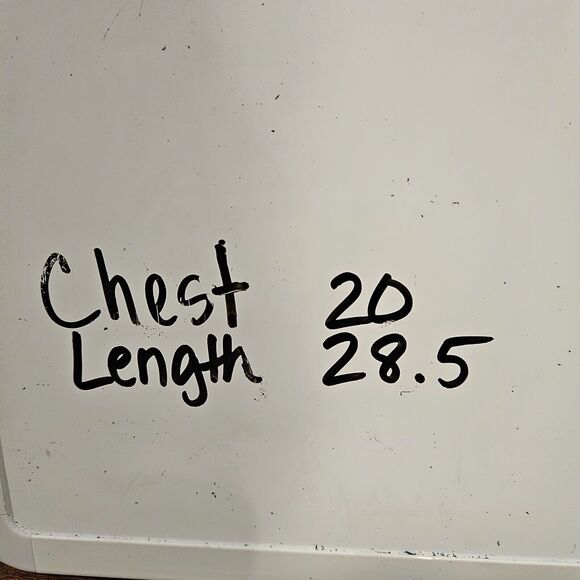 Chest 20
Length 28.5